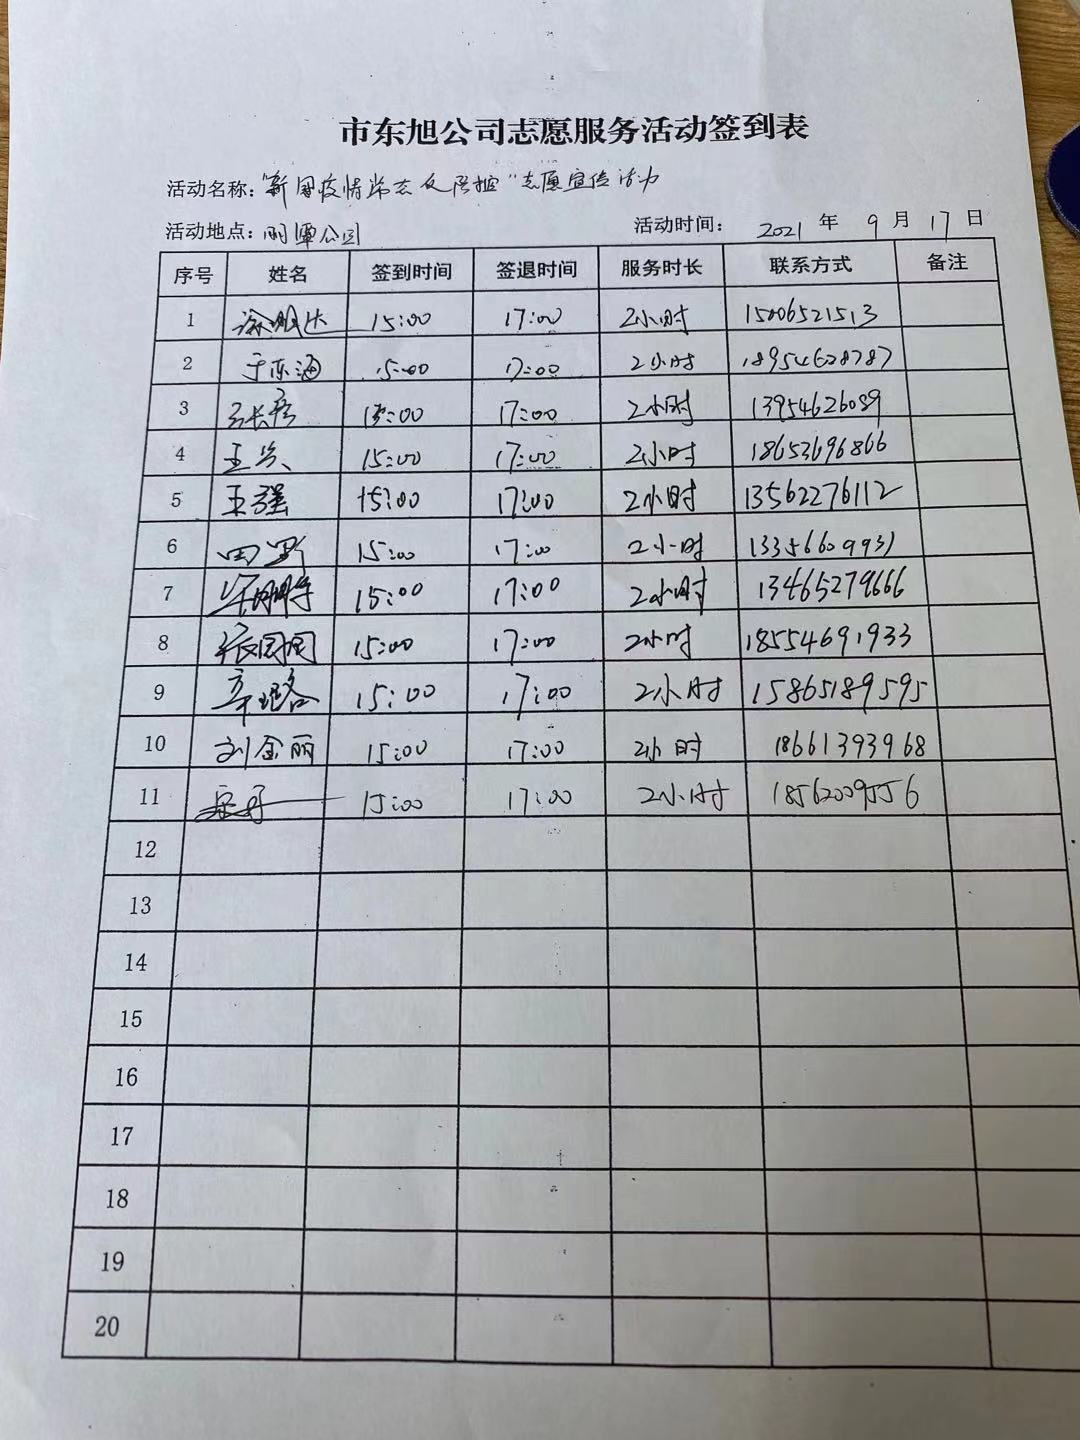 市东旭公司志愿服务活动签到表
活动名称："新冠疫情常态 防控"志愿宣传活力
活动地点： 公司 活动时间： 2021 年 9 月 17 日
序号 姓名 签到时间 签退时间 服务时长 联系方式 备注
1 15:00 17:00 2小时 15006521513
2 于东海 15:00 17:00 2小时 18954628787
3 15:00 17:00 2小时 13954626089
4 15:00 17:00 2小时 18653696866
5 王强 15:00 17:00 2小时 13562276112
6 田野 15:00 17:00 2小时 13356609931
7 15:00 17:00 2小时 13465279666
8 张园园 15:00 17:00 2小时 18554691933
9 15:00 17:00 2小时 15865189595
10 刘金丽 15:00 17:00 2小时 18661393968
11 15:00 17:00 2小时 18562009556
12
13
14
15
16
17
18
19
20